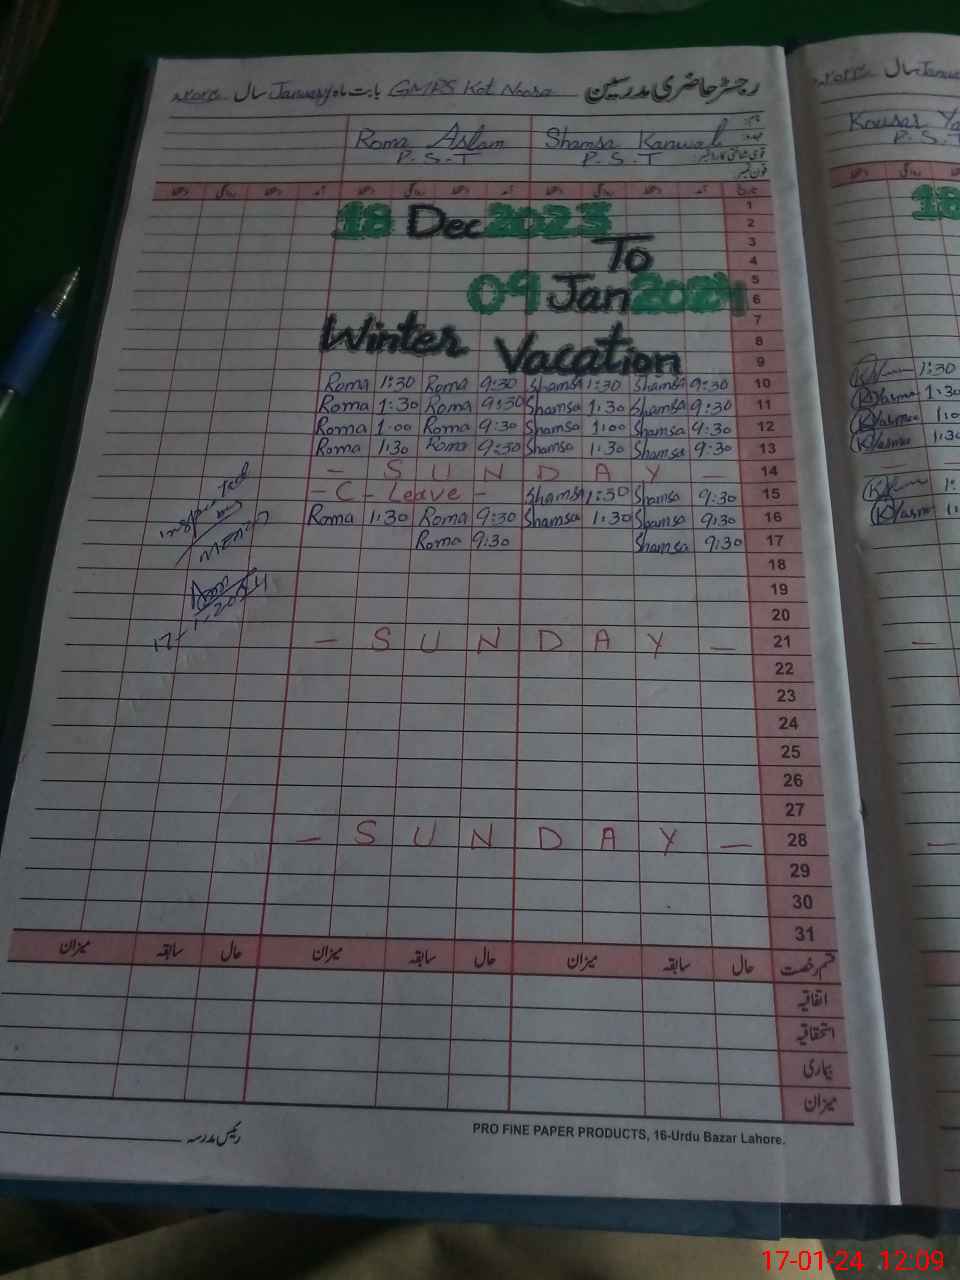 رجسٹر حاضری مدرسین GMPS Kot Noora بابت ماہ January سال
نام:
Shamsa Kanwal Roma Aslam
عہدہ:
P.S.T P.S.T
قومی شناختی کارڈ نمبر:
فون نمبر:
تاریخ آمد دستخط روانگی دستخط آمد دستخط روانگی دستخط آمد دستخط روانگی دستخط
1
18 Dec 2023
2
To
3
4
09 Jan 2024
5
6
7
Winter Vacation
8
9
Roma 1:30 Roma 9:30 Shamsa 1:30 Shamsa 9:30 10
Roma 1:30 Roma 9:30 Shamsa 1:30 Shamsa 9:30 11
Roma 1:00 Roma 9:30 Shamsa 1:00 Shamsa 9:30 12
Roma 1:30 Roma 9:30 Shamsa 1:30 Shamsa 9:30 13
- S U N D A Y - 14
- C - Leave - Shamsa 1:30 Shamsa 9:30 15
Roma 1:30 Roma 9:30 Shamsa 1:30 Shamsa 9:30 16
Roma 9:30 Shamsa 9:30 17
Inspected
by
17-1-2024
18
19
20
- S U N D A Y - 21
22
23
24
25
26
27
- S U N D A Y - 28
29
30
31
قسم رخصت حال سابقہ میزان حال سابقہ میزان حال سابقہ میزان
اتفاقیہ
استحقاقیہ
بیماری
میزان
رئیس مدرسہ
PRO FINE PAPER PRODUCTS, 16-Urdu Bazar Lahore.
سال
Kousar
P.S.T
18
1:30
1:30
17-01-24 12:09